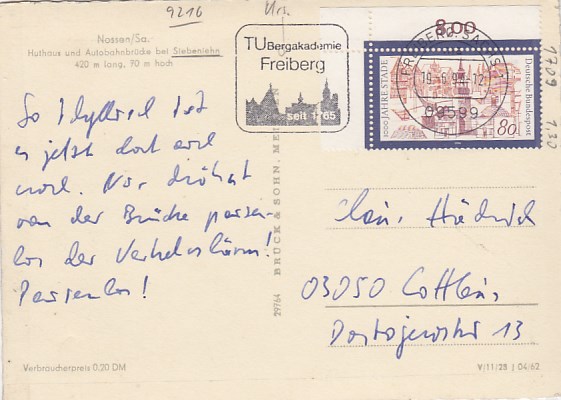 9216
Nossen/Sa.
Huthaus und Autobahnbrücke bei Siebenlehn
420 m lang, 70 m hoch
TU Bergakademie
Freiberg
seit 1765
8,00
FREIBERG, SACHS
-12
09599
1000 JAHRE STADE
Deutsche Bundespost
80
1709 130
So Idyllisch ist
es jetzt dort wohl
noch. Nur dröhnt
von der Brücke pausen-
los der Verkehrslärm!
Pausenlos!
29764 BRÜCK & SOHN, MEISSEN
03050 Cottbus,
Dostojewskistr 13
Verbraucherpreis 0,20 DM
V/11/28 | 04/62